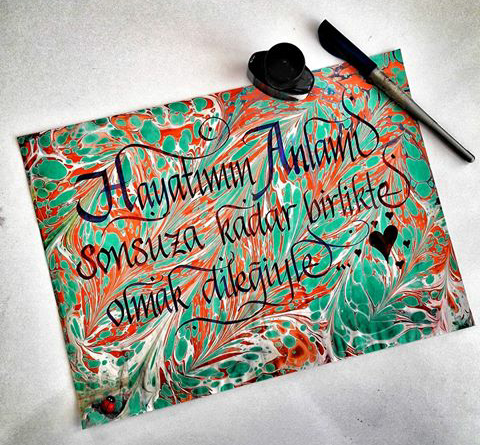 Hayatımın Anlamı
sonsuza kadar birlikte
olmak dileğiyle...